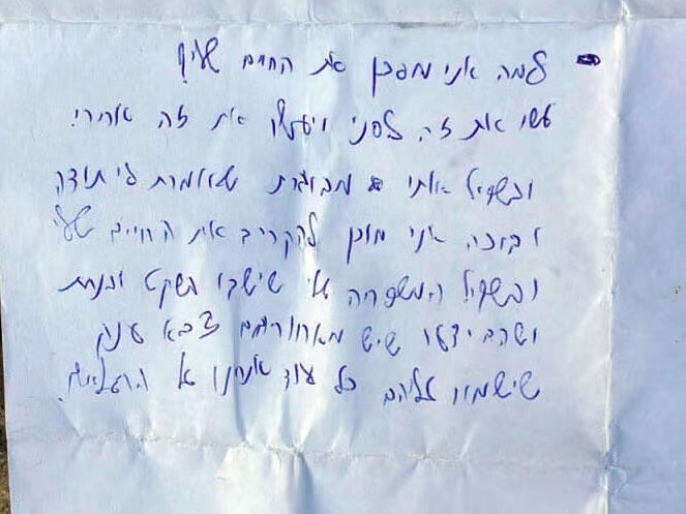 למה אני מסכן את החיים שלי?
עשו את זה לפני ויעשו את זה אחרי.
ובשביל אותי מבוגרת שאומרת לי תודה
ובוכה אני מוכן להקריב את החיים שלי
ובשביל המשפחה שלי שישבו בשקט ובנחת
ושהם ידעו שיש מאחוריהם צבא ענק
שישמור עליהם כל עוד אנחנו